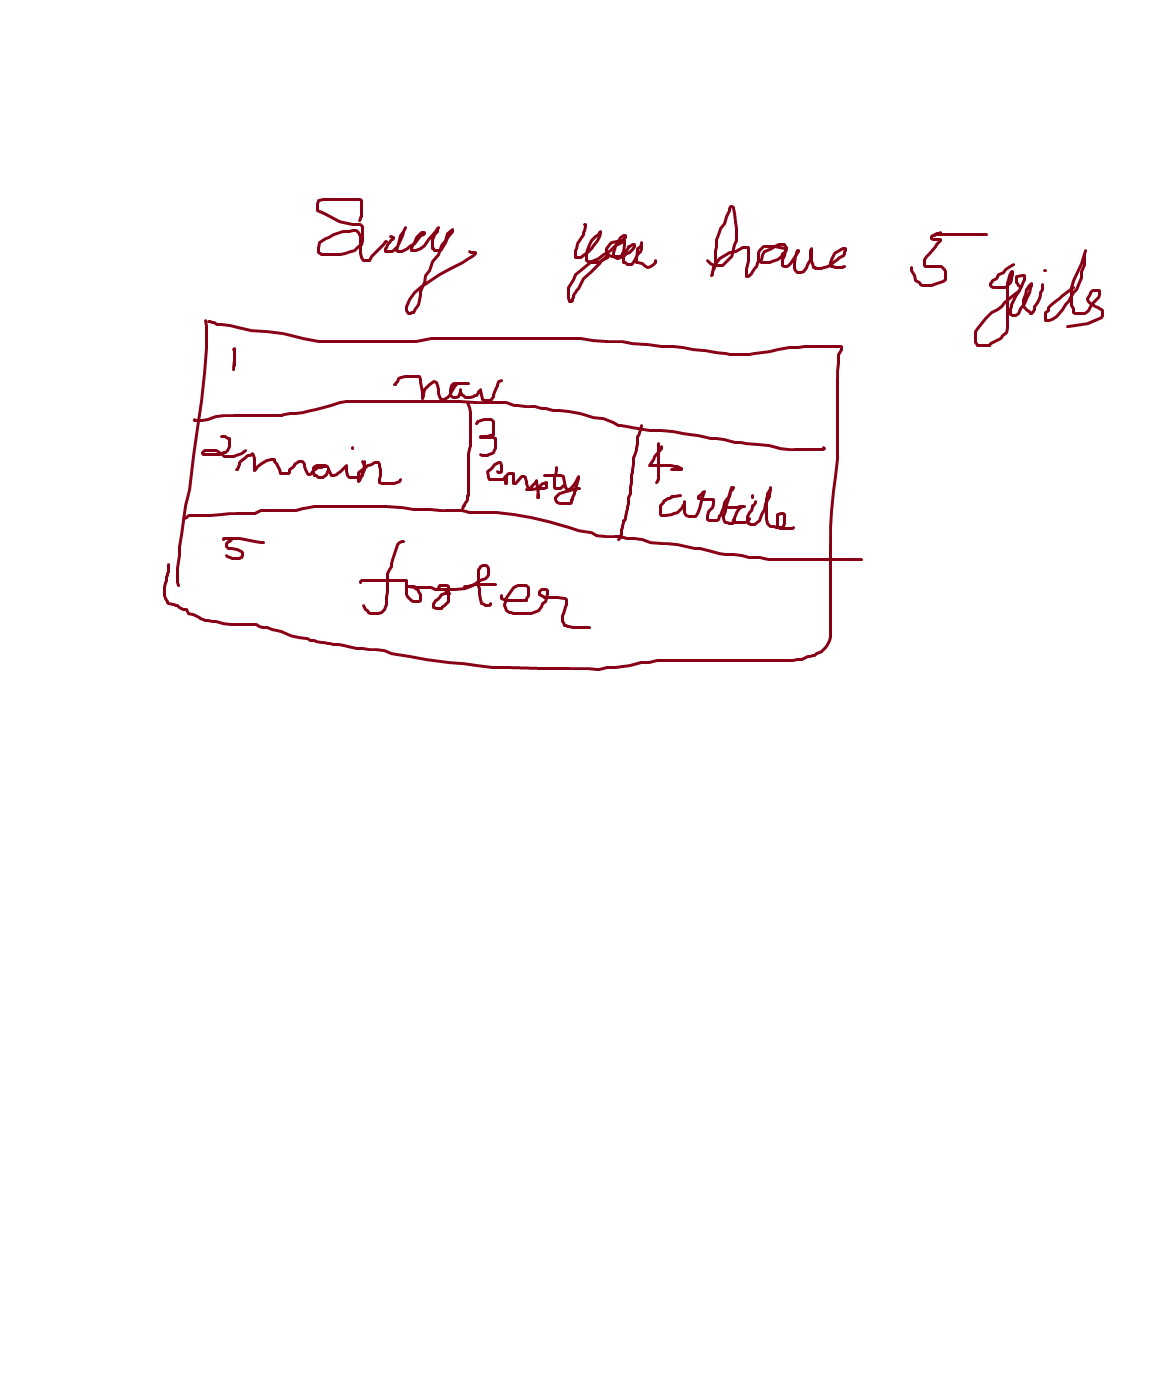 Say you have 5 grids
1
nav
2 main
3
empty
4
article
5
footer